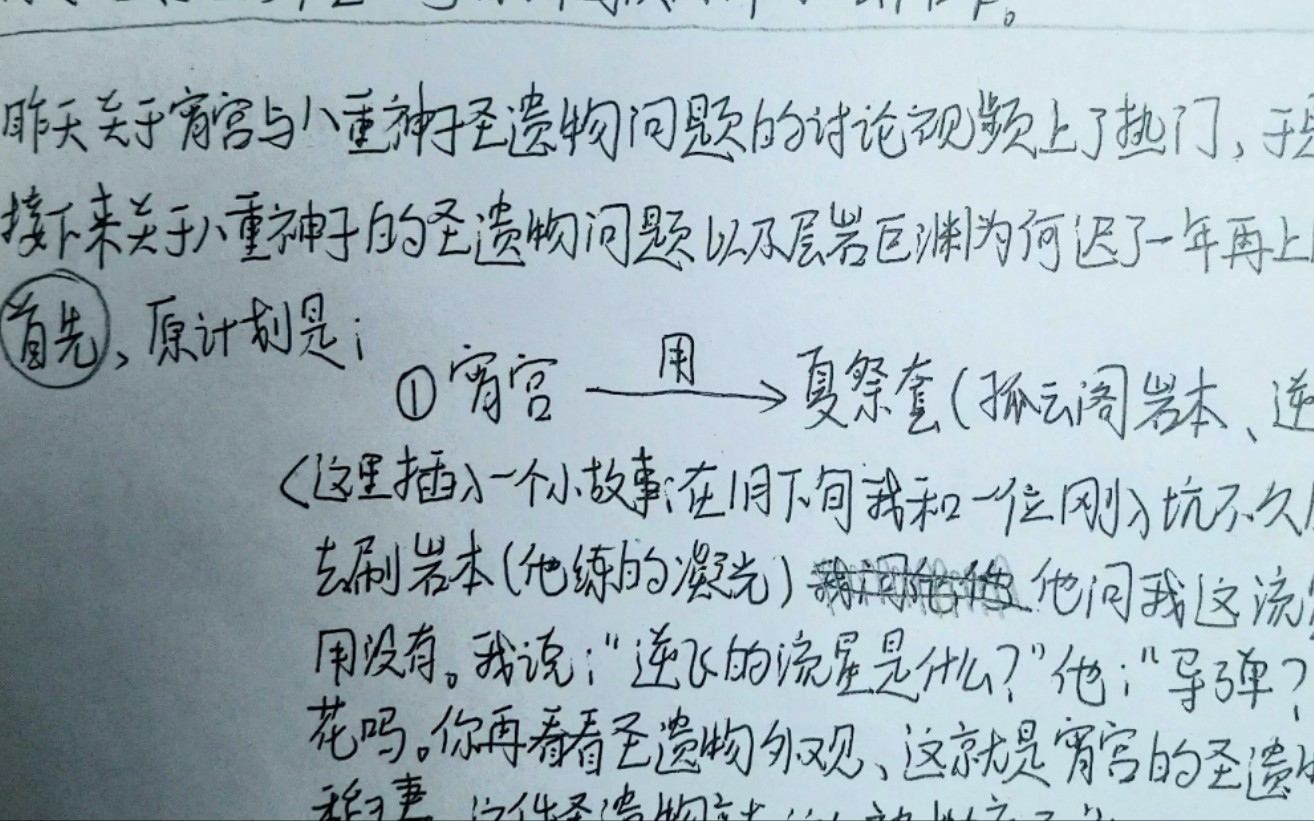 昨天关于宵宫与八重神子圣遗物问题的讨论视频上了热门,于是
接下来关于八重神子的圣遗物问题以及层岩巨渊为何迟了一年再上
首先,原计划是:
①宵宫 用→ 夏祭套(孤云阁岩本、逆
〈这里插入一个小故事:在1月下旬我和一位刚入坑不久
去刷岩本(他练的凝光)他问我这流
用没有。我说:“逆飞的流星是什么?”他:“导弹?
花吗。你再看看圣遗物外观、这就是宵宫的圣遗物